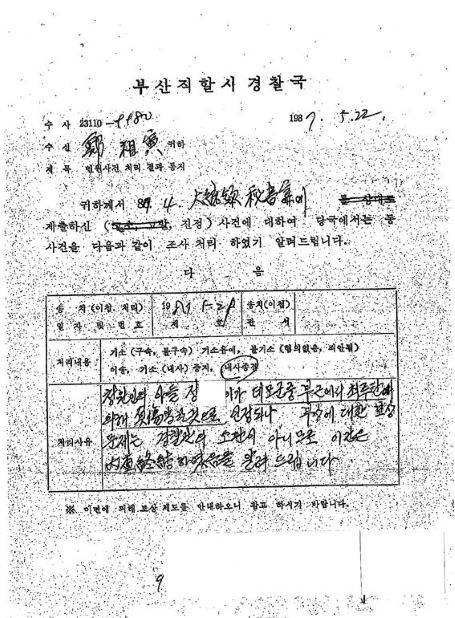 부산직할시경찰국
수 사 23110 - 9980
1987. 5. 22.
수 신 鄭祖寅 귀하
제 목 민원사건 처리 결과 통지
귀하께서 87. 4. 大統領 秘書室에
제출하신 (진정) 사건에 대하여 당국에서는 동
사건을 다음과 같이 조사 처리 하였기 알려드립니다.
다 음
송 치(이첩, 처리) 일 자 및 번 호
1987. 5. 21 제 호
송치(이첩) 관 서
처리내용
기소 (구속, 불구속) 기소유예, 불기소 (혐의없음, 죄안됨)
이송, 기소 (내사) 중지, 내사종결
처리사유
진정인의 아들 정 이가 데모군중 부근에서 최루탄에
의해 것으로 인정되나 에 대한 보상
문제는 경찰관의 소관이 아니므로
알려 드립니다
※ 이면에 의해 보상 제도를 안내하오니 참고 하시기 바랍니다.
9